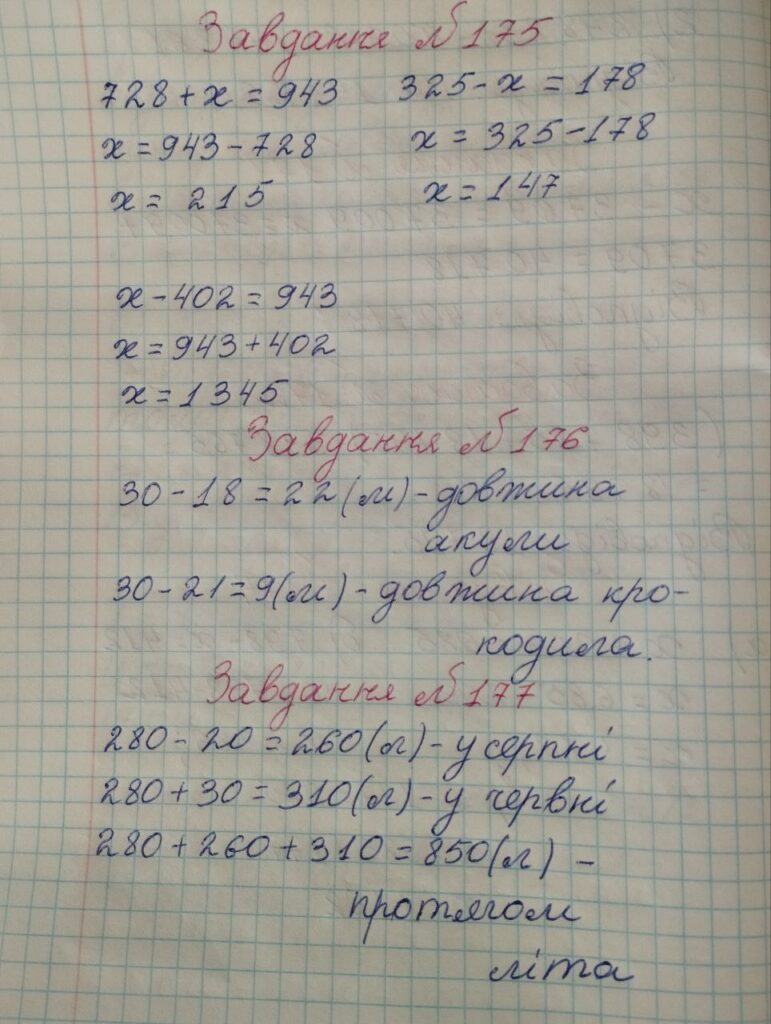 Завдання №175
728+x=943 325-x=178
x=943-728 x=325-178
x=215 x=147
x-402=943
x=943+402
x=1345
Завдання №176
30-18=22(м)-довжина
акули
30-21=9(м)-довжина кро-
кодила.
Завдання №177
280-20=260(л)-у серпні
280+30=310(л)-у червні
280+260+310=850(л)-
протягом
літа